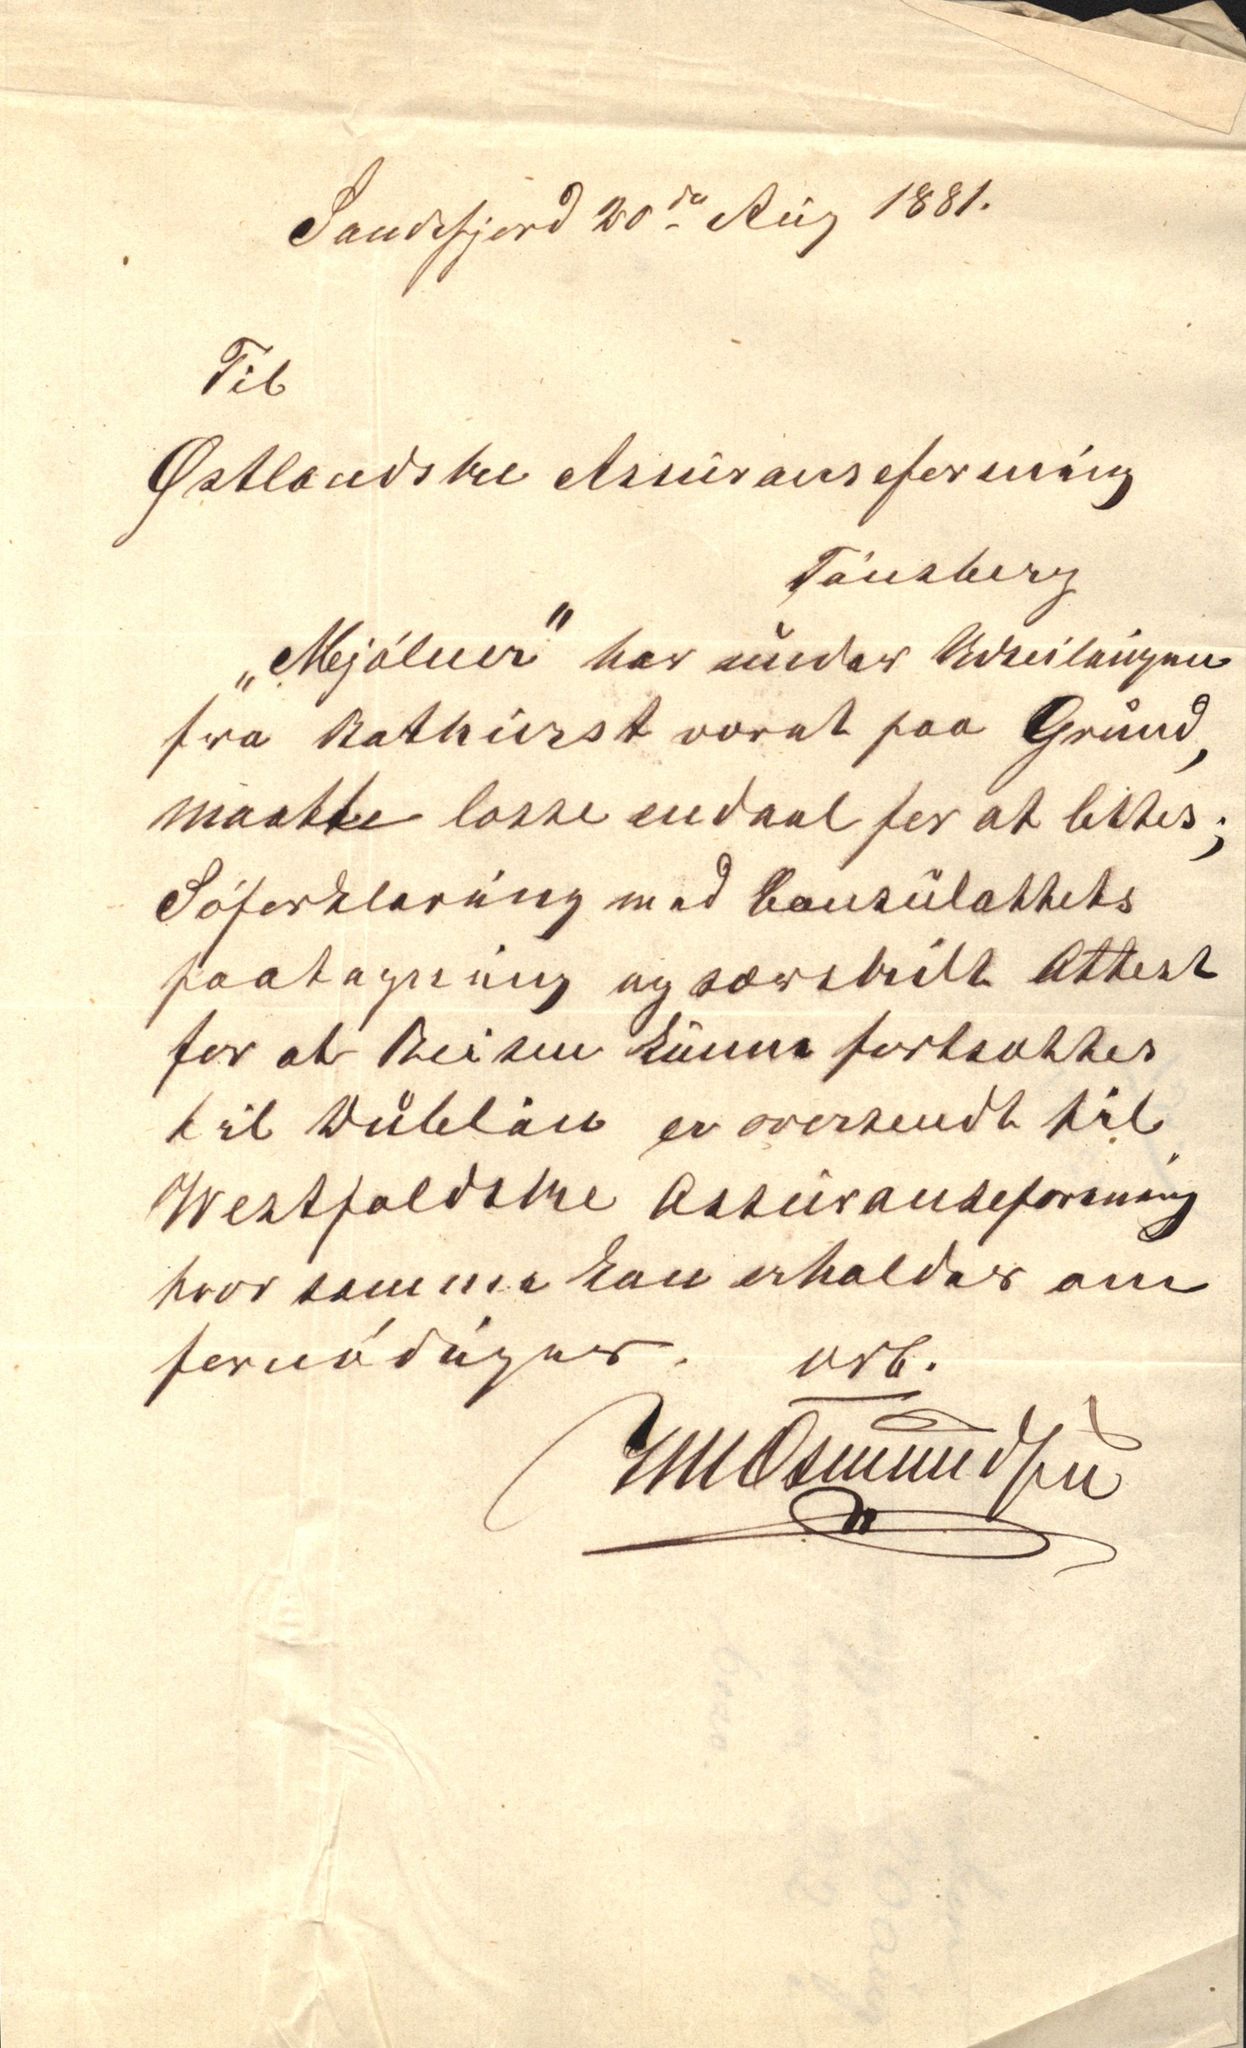 Sandefjord 20de Aug 1881.
Til
Østlandske Assuranseforening
Tönsberg
„Mjölner" har under Udseilingen
fra Bathurst voret paa Grund,
maatte losse endeel for at lettes;
Söforklaring med Consulattets
paategning og særskilt Attest
for at Reisen kunne fortsættes
til Dublin er oversendt til
Westfoldske Assuranseforening
hvor samme kan erholdes om
fornödiges. Erb.
Osmundsen